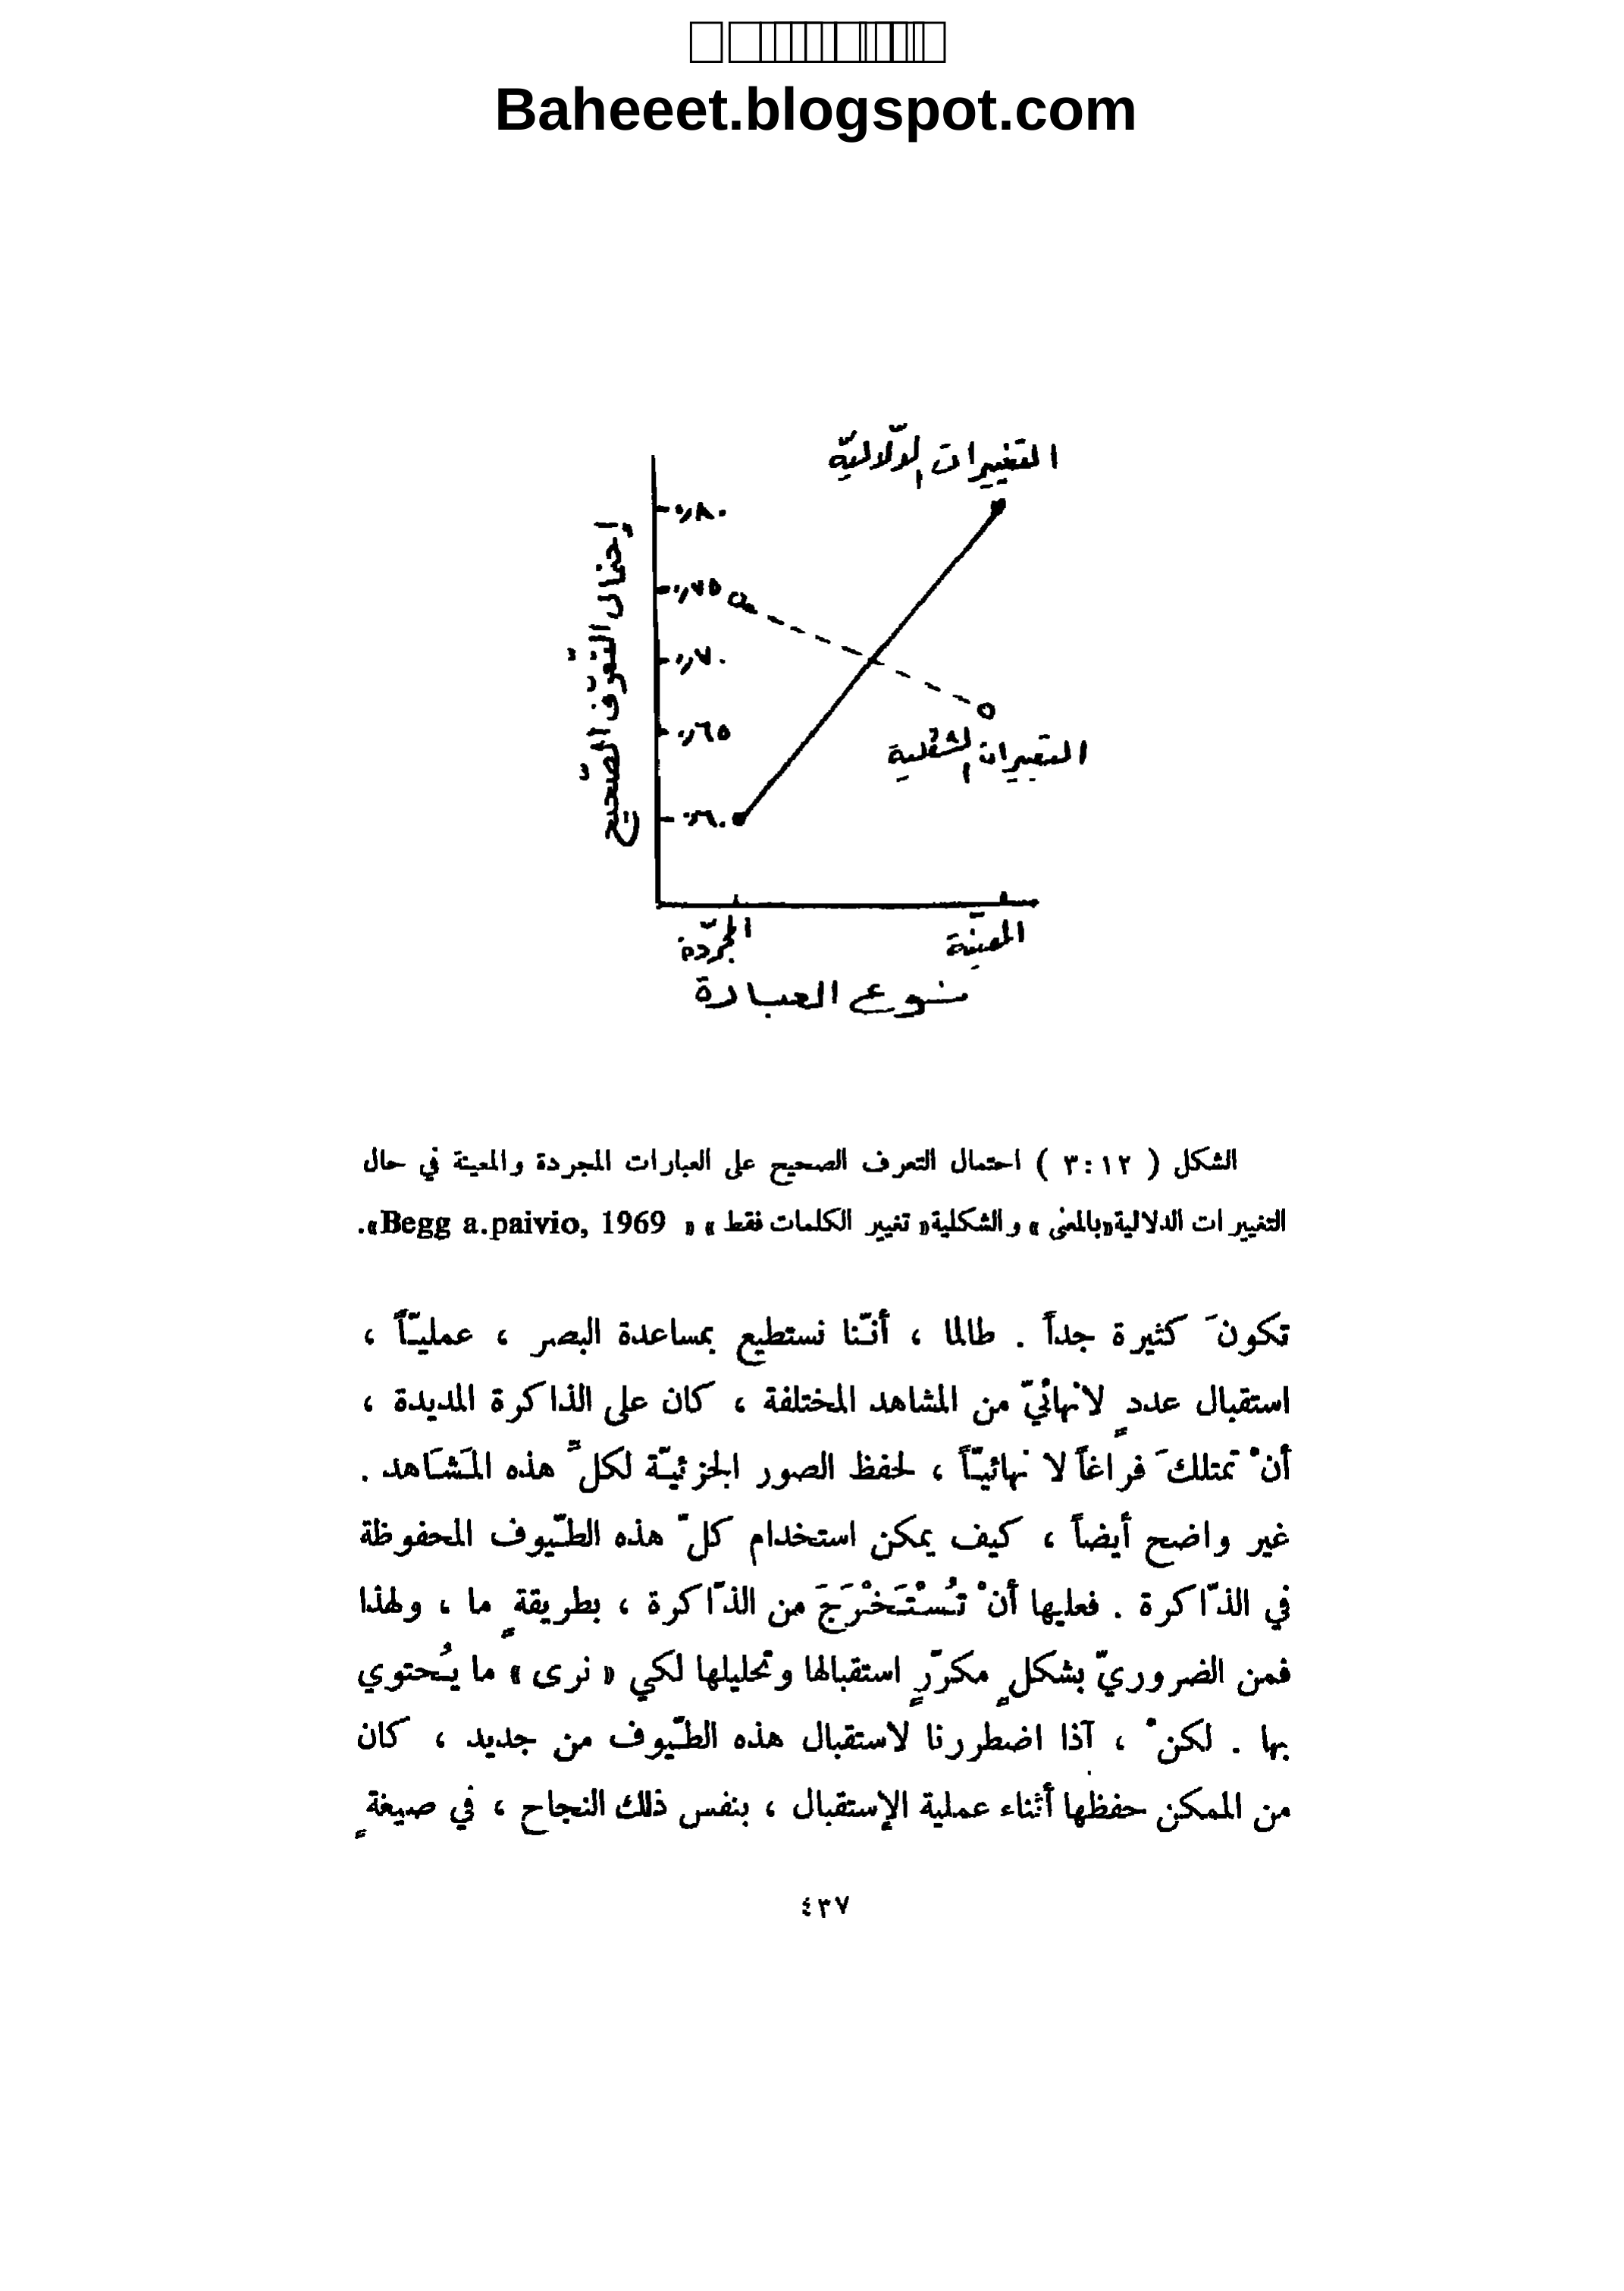 Baheeet.blogspot.com
التغييرات الدّلاليّة
٠,٨٠
٠,٧٥
٠,٧٠
٠,٦٥
٠,٦٠
إحتمال التّعرّف الصّحيح
التغييرات الشكلية
المجرّدة
المعيّنة
نوع العبارة
الشكل ( ٣:١٢ ) احتمال التعرف الصحيح على العبارات المجردة والمعينة في حال
التغييرات الدلالية«بالمعنى » والشكلية« تغيير الكلمات فقط » « Begg a.paivio, 1969».
تكونَ كثيرة جداً . طالما ، أنّنا نستطيع بمساعدة البصر ، عمليّاً ،
استقبال عددٍ لانهائيّ من المشاهد المختلفة ، كان على الذاكرة المديدة ،
أنْ تمتلكَ فراغاً لا نهائيّاً ، لحفظ الصور الجزئيّة لكلِّ هذه المَشَاهد .
غير واضح أيضاً ، كيف يمكن استخدام كلّ هذه الطّيوف المحفوظة
في الذّاكرة . فعليها أنْ تُسْتَخْرَجَ من الذّاكرة ، بطريقةٍ ما ، ولهذا
فمن الضروريّ بشكلٍ مكرّرٍ استقبالها وتحليلها لكي « نرى » ما يُحتوي
بها . لكنْ ، آذا اضطررنا لاستقبال هذه الطّيوف من جديد ، كان
من الممكن حفظها أثناء عملية الإستقبال ، بنفس ذلك النجاح ، في صيغةٍ
٤٣٧